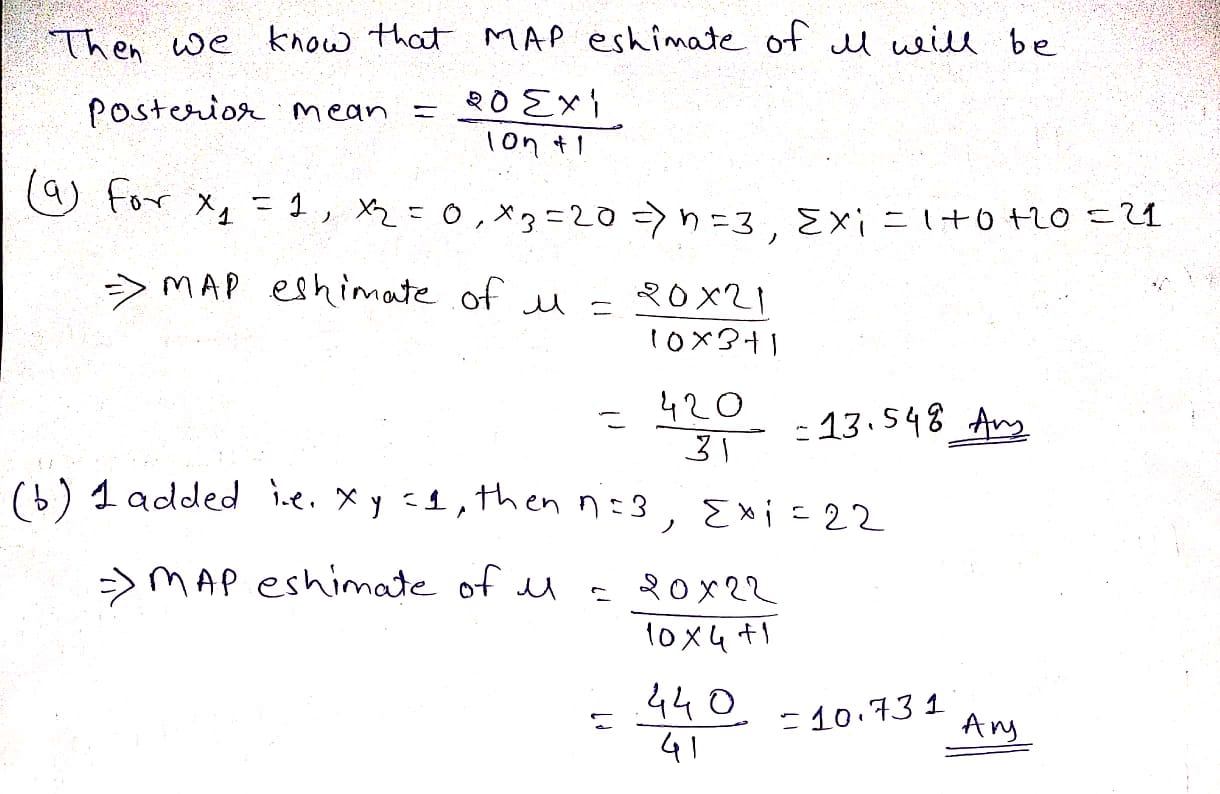 Then we know that MAP eshimate of u will be
posterior mean = 20 Σxi / 10n+1
(a) for x₁ = 1, x₂ = 0, x₃ = 20 ⇒ n=3, Σxi = 1+0+20 = 21
⇒ MAP eshimate of u = 20×21 / 10×3+1
= 420 / 31 = 13.548 Ans
(b) 1 added i.e. xy = 1, then n=3, Σxi = 22
⇒ MAP eshimate of u = 20×22 / 10×4+1
= 440 / 41 = 10.731 Ans